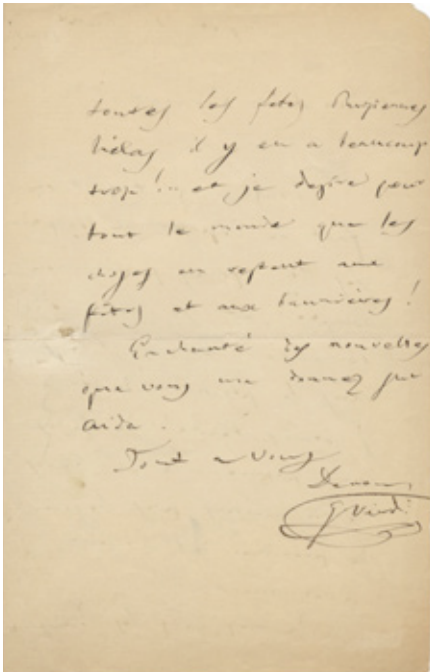 toutes les fetes Parisiennes
hélas il y en a beaucoup
trop!.. et je desire pour
tout le monde que les
choses en restent aux
fêtes et aux bannières!
Enchanté des nouvelles
que vous me donnez sur
Aida.
Tout a Vous
G Verdi